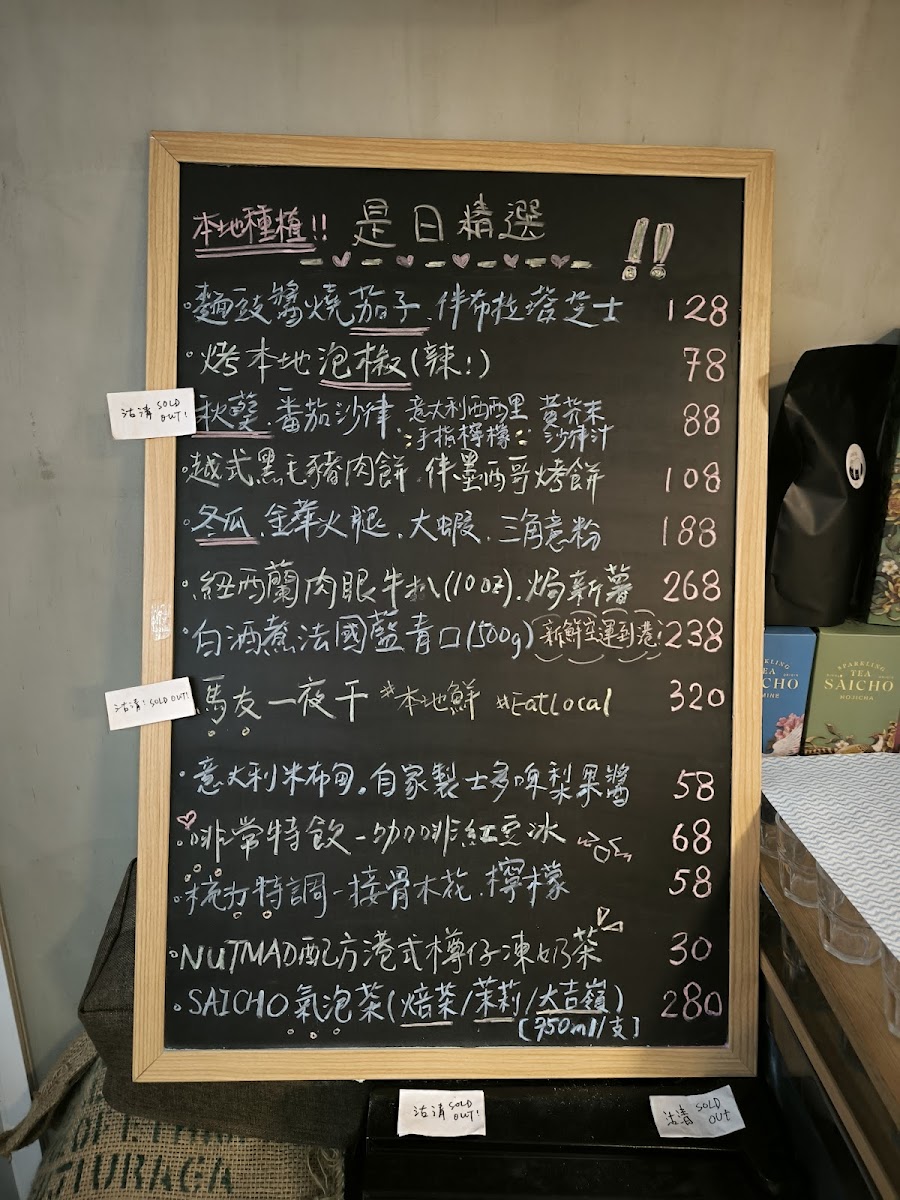 本地種植!! 是日精選 !!
麵豉醬燒茄子.伴布拉塔芝士 128
烤本地泡椒(辣!) 78
沽清 SOLD OUT!
秋葵.番茄沙律.意大利西西里手指檸檬 黃芥末沙律汁 88
越式黑毛豬肉餅.伴墨西哥烤餅 108
冬瓜.金華火腿.大蝦.三角意粉 188
紐西蘭肉眼牛扒(10oz).焗新薯 268
白酒煮法國藍青口(500g) 新鮮空運到港! 238
沽清! SOLD OUT!
馬友一夜干 #本地鮮 #EatLocal 320
意大利米布甸.自家製士多啤梨果醬 58
啡常特飲-咖啡紅豆冰 68
梳打特調-接骨木花.檸檬 58
NUTMAD配方港式樽仔凍奶茶 30
SAICHO氣泡茶(焙茶/茉莉/大吉嶺) 280
[750ml/支]
沽清 SOLD OUT!
沽清 SOLD OUT
SPARKLING
TEA
SAICHO
HOJICHA